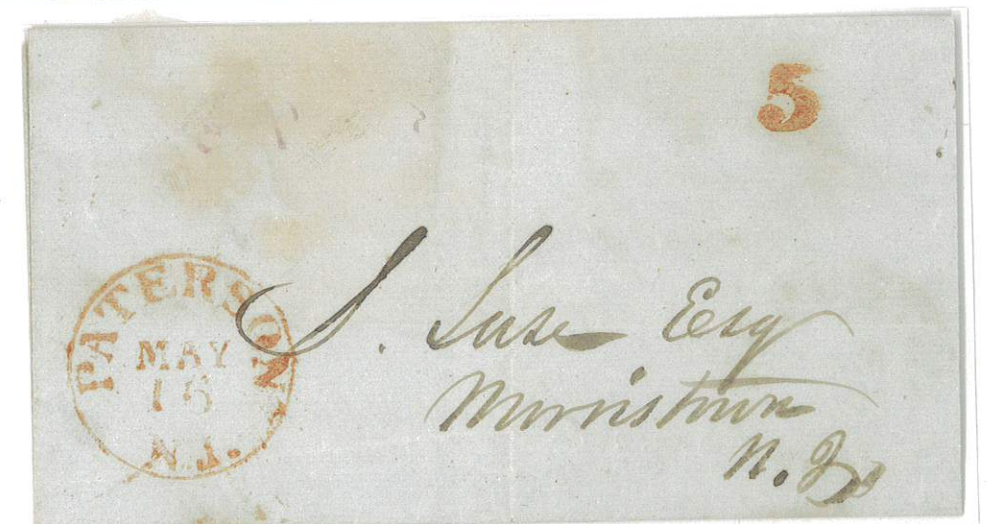 5
PATERSON
MAY
15
N.J.
S. Esq
Morristown
N. Jy